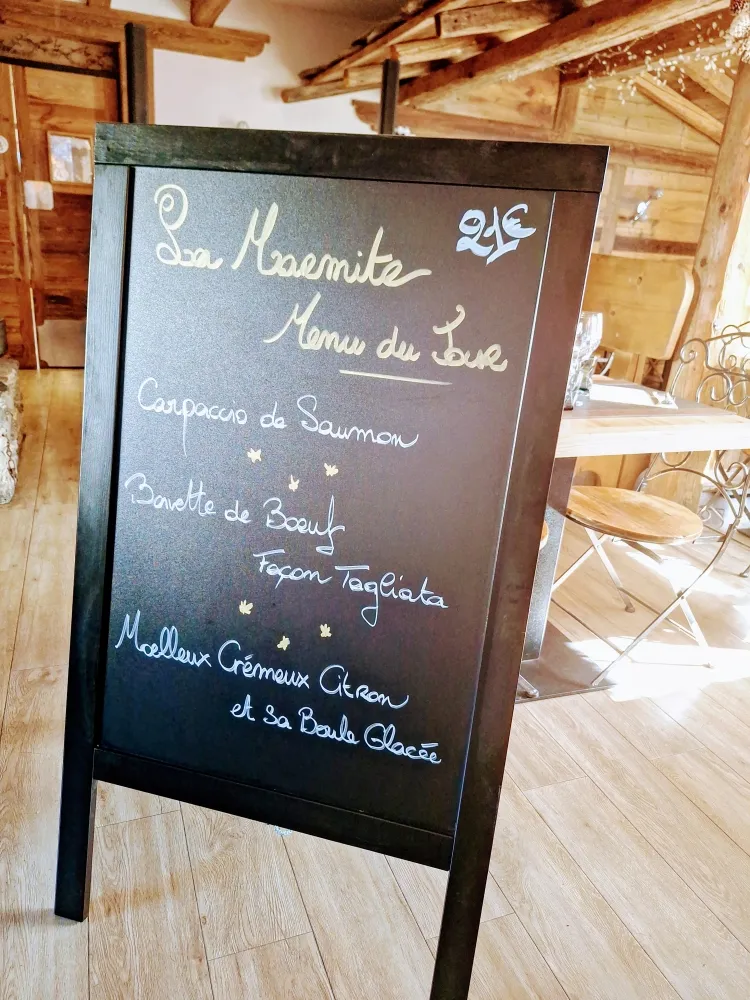 La Marmite
21€
Menu du Jour
Carpaccio de Saumon
Bavette de Boeuf
Façon Tagliata
Moelleux Crémeux Citron
et Sa Boule Glacée